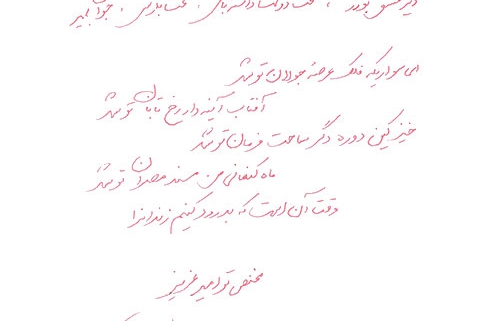 ای سواریکه فلک عرصهٔ جولان تو شد
آفتاب آینه دار رخ تابان تو شد
خیز کین دوره دگر ساحت فرمان تو شد
ماه کنعانی من مسند مصر آن تو شد
وقت آن است که بدرود کنیم زندانرا
مخلص تو امیر عزیز